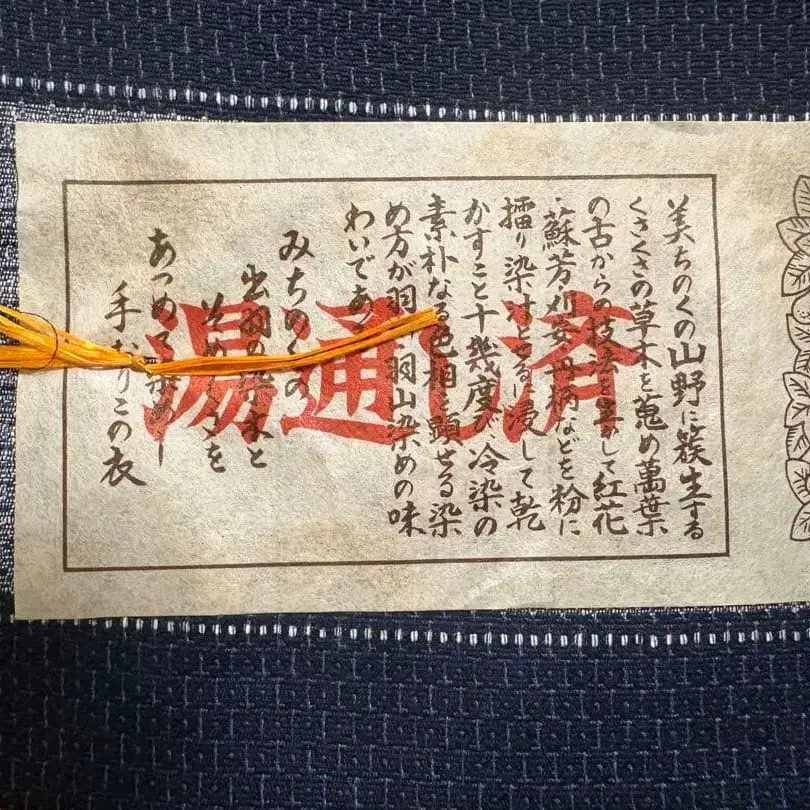 美ちのくの山野に簇生する
くさくさの草木を蒐め萬葉
の古からの技法を生かして紅花
蘇芳刈安丹柄などを粉に
擂り染材とせるに浸して乾
かすこと十幾度び冷染の
素朴なる色相を顕せる染
め方が羽前羽山染めの味
わいである
みちのくの
出羽の染木と
そめくさを
あつめて染めし
手おりこの衣
湯通し済